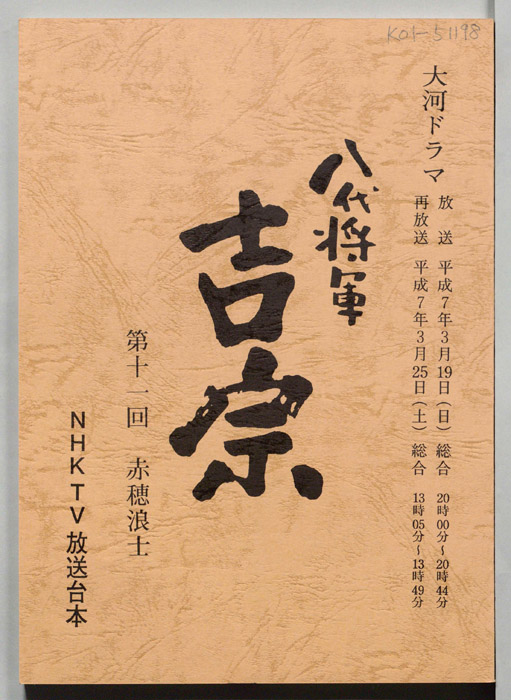 K01-51198
大河ドラマ
放送 平成7年3月19日(日) 総合 20時00分~20時44分
再放送 平成7年3月25日(土) 総合 13時05分~13時49分
八代将軍
吉宗
第十一回 赤穂浪士
NHK TV 放送台本